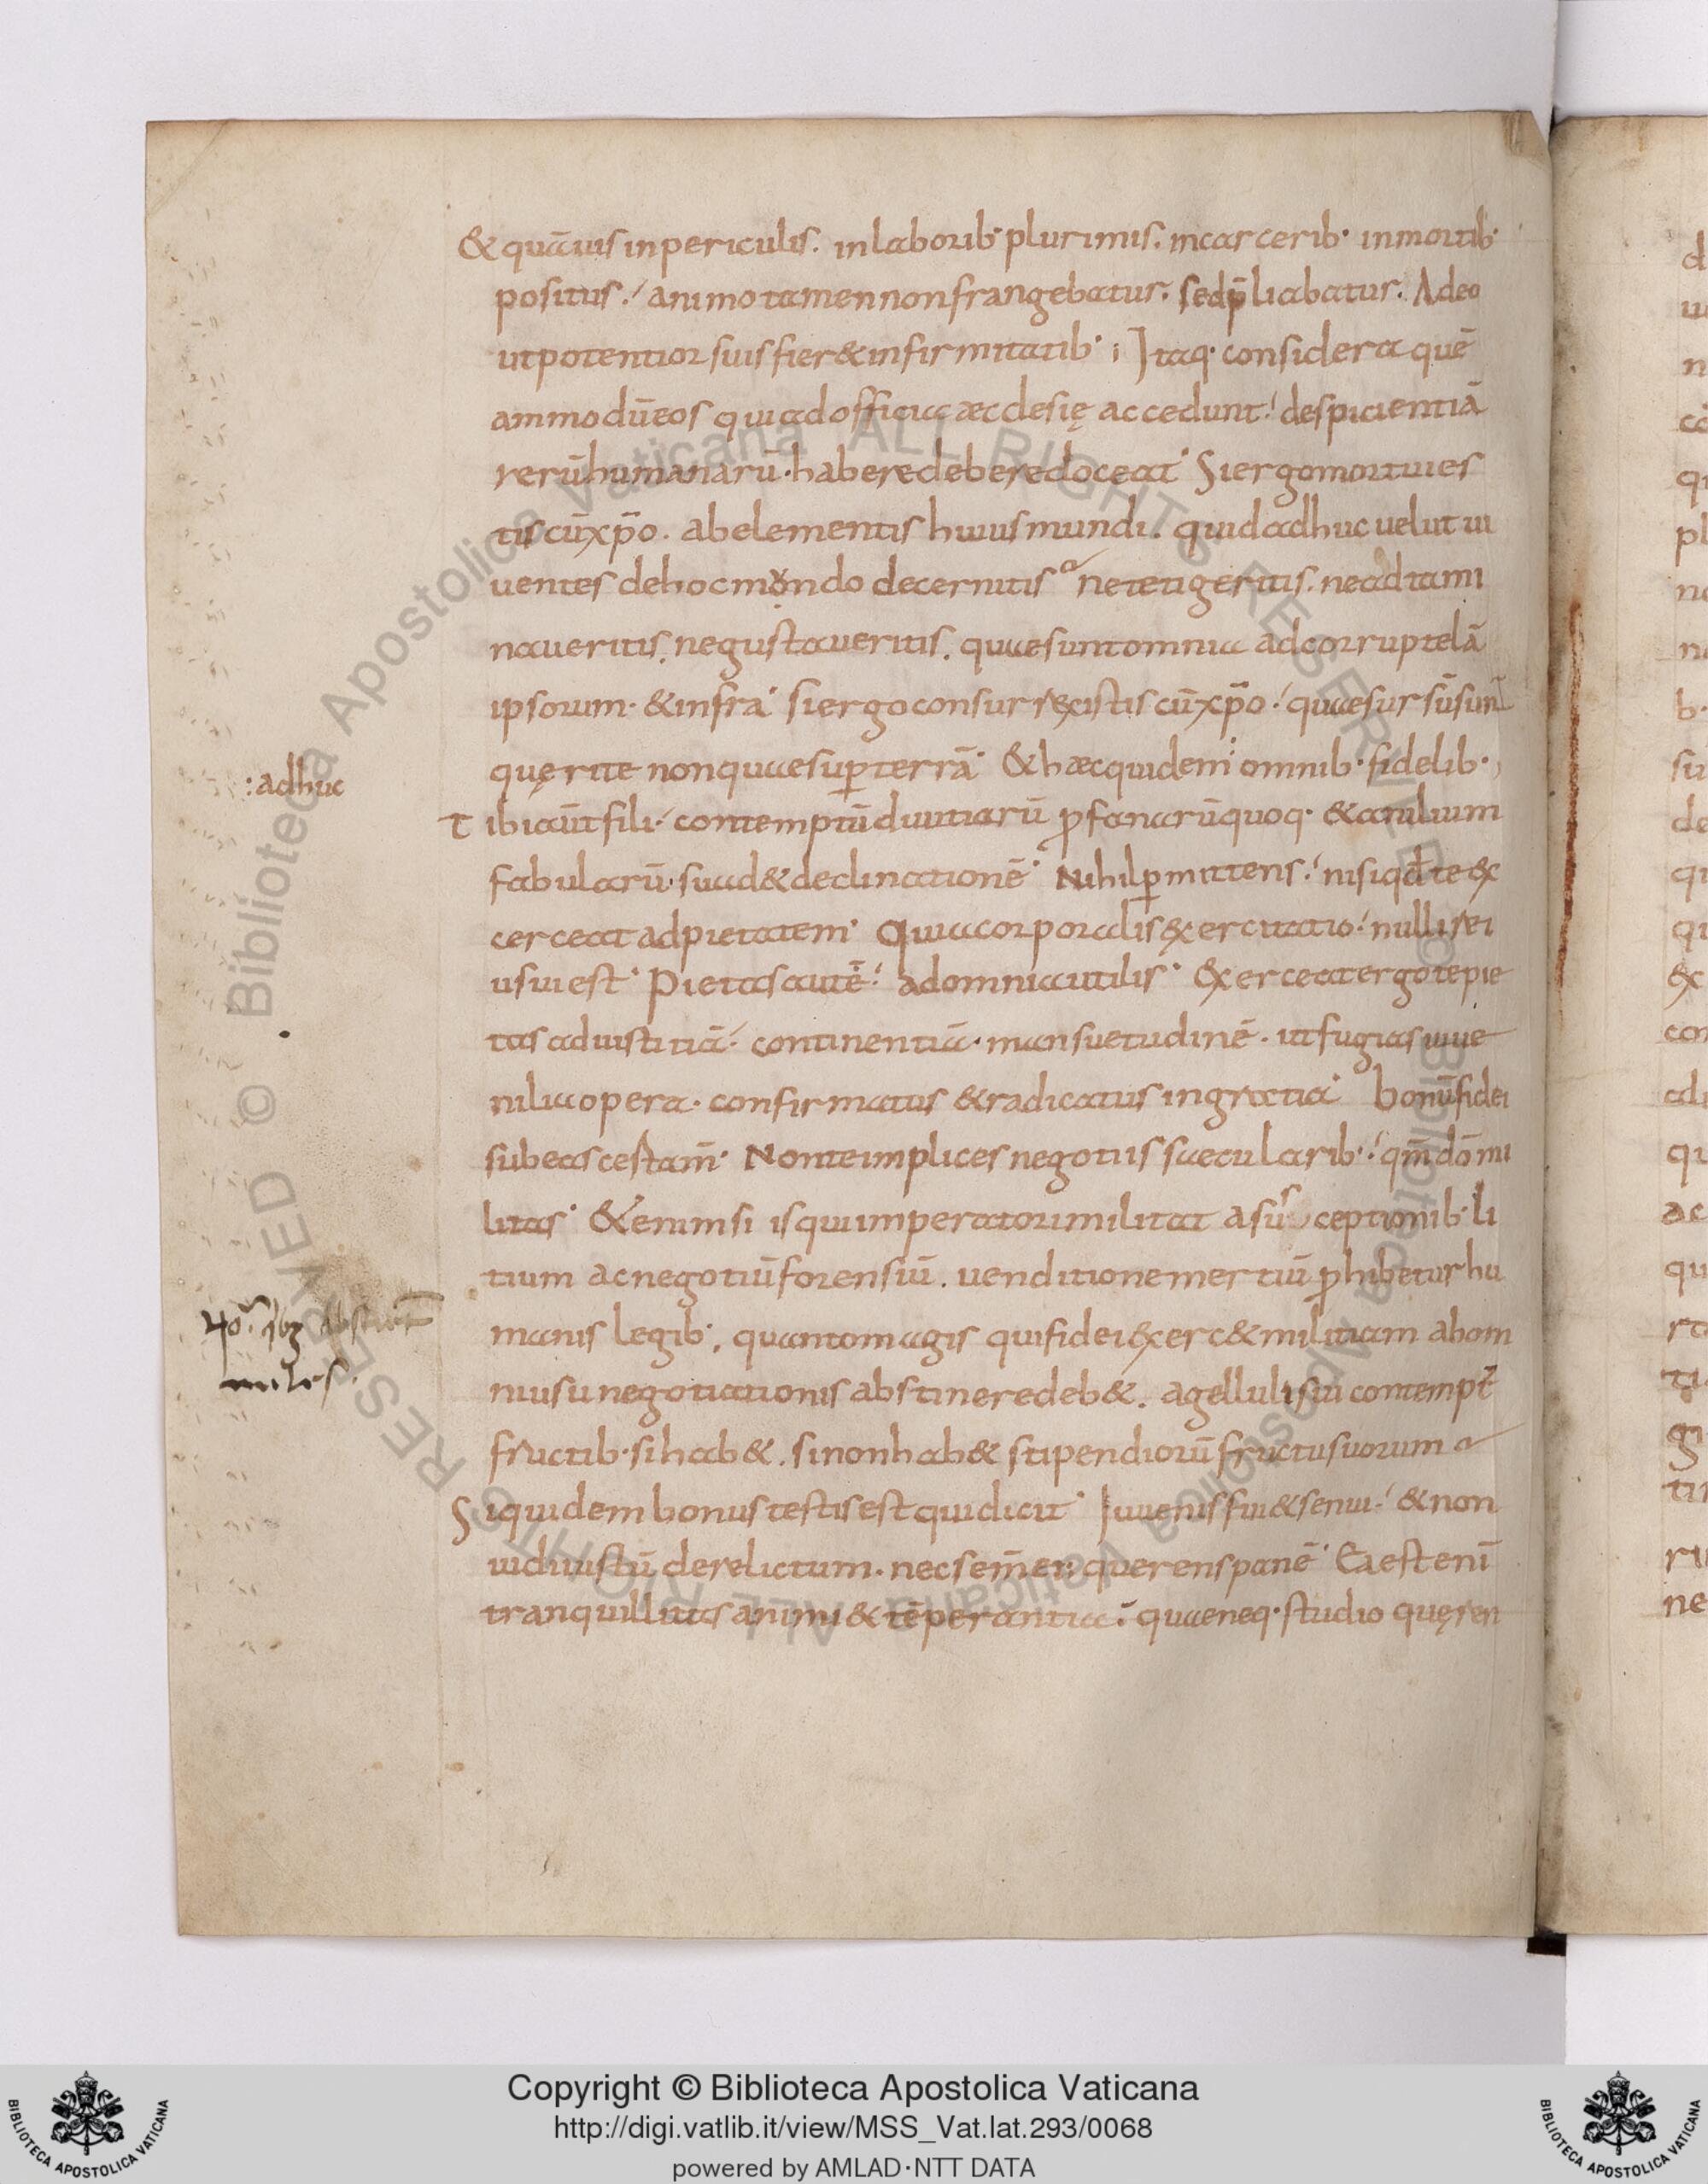 & quāuis in periculis. in laborib· plurimis. in carcerib· in mortib·
positus. animo tamen non frangebatur. sed p̄liabatur. Adeo
ut potentior suis fier& infirmitatib· ; Itaq· considera quē
ammodū eos qui ad officia æcclesię accedunt. despicientiā
rerū humanarū· habere debere doceat· Si ergo mortui es
tis cū xp̄o. ab elementis huius mundi. quid adhuc uelut ui
uentes de hoc mundo decernitis ne tetigeritis. ne ad tami
naueritis. ne gustaueritis. quae sunt omnia ad corruptelā
ipsorum· & infra· si ergo consurrexistis cū xp̄o. quae sursū sunt
quęrite non quae sup terrā· & hæc quidem : omnib· fidelib·
:adhuc
Tibi aūt fili· contemptū diuitiarū pfanarūquoq· & anilium
fabularū· suad& declinationē· Nihil pmittens. nisi qđ te ex
erceat ad pietatem· Quia corporalis exercitatio. nulli rei
usui est· Pietas autē. ad omnia utilis· Exerceat ergo te pie
tas ad iustitiā. continentiā· mansuetudinē· ut fugias iuue
nilia opera· confirmatus & radicatus in gratia· bonū fidei
subeas cestam̄· Non te implices negotiis saecularib·. qm̄ dō mi
litas· &enim si is qui imperatori militat a sūs ceptionib· li
tium ac negotiū forensiū. uenditione mertiū phibetur hu
40. qbȝ
miles.
manis legib·. quanto magis qui fidei exerc& militiam ab om
ni usu negotiationis abstinere deb&. agelluli sui contempt̄
fructib· si hab&. si non hab& stipendiorū fructu suorum
Siquidem bonus testis est qui dicit· Iuuenis fui & senui. & non
uidi iustū derelictum. nec sem̄ en quęrens panē· Ea est enī
tranquillitas animi & tēperantia. quae neq· studio quęren
Copyright © Biblioteca Apostolica Vaticana
http://digi.vatlib.it/view/MSS_Vat.lat.293/0068
powered by AMLAD·NTT DATA
BIBLIOTECA APOSTOLICA VATICANA
BIBLIOTECA APOSTOLICA VATICANA